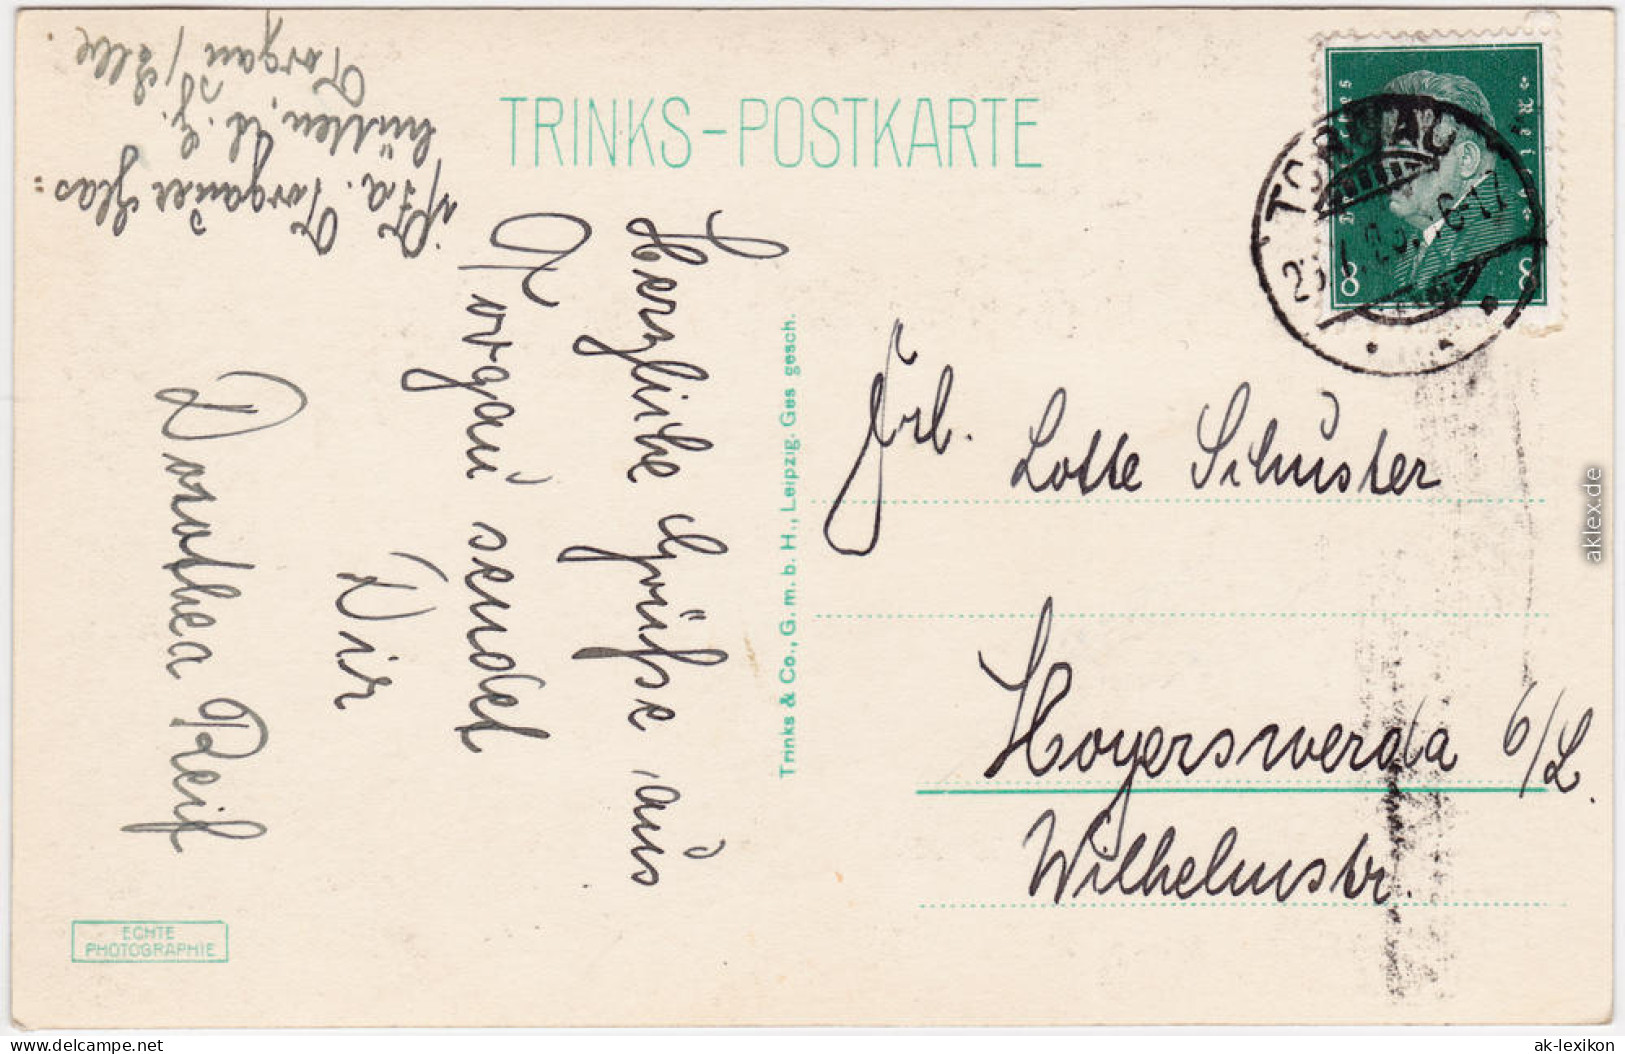 TRINKS-POSTKARTE
Herzliche Grüsse aus
Torgau sendet
Dir
Dorothea Reif
i/Fa. Torgauer Glas=
hütten,
Torgau / Elbe
Trinks & Co., G. m. b. H., Leipzig. Ges gesch.
ECHTE
PHOTOGRAPHIE
Deutsches Reich
8 8
TORGAU
6-17
Frl. Lotte Schuster
Hoyerswerda O/L.
Wilhelmstr.
aklex.de
delcampe.net
ak-lexikon